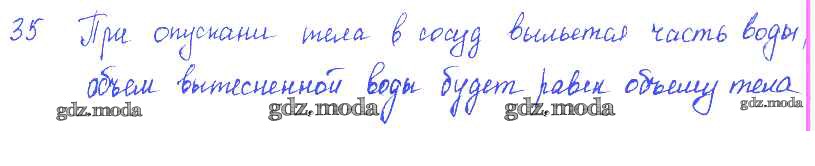 35 При опускани тела в сосуд выльется часть воды,
объем вытесненной воды будет равен объему тела
gdz.moda gdz.moda gdz.moda gdz.moda